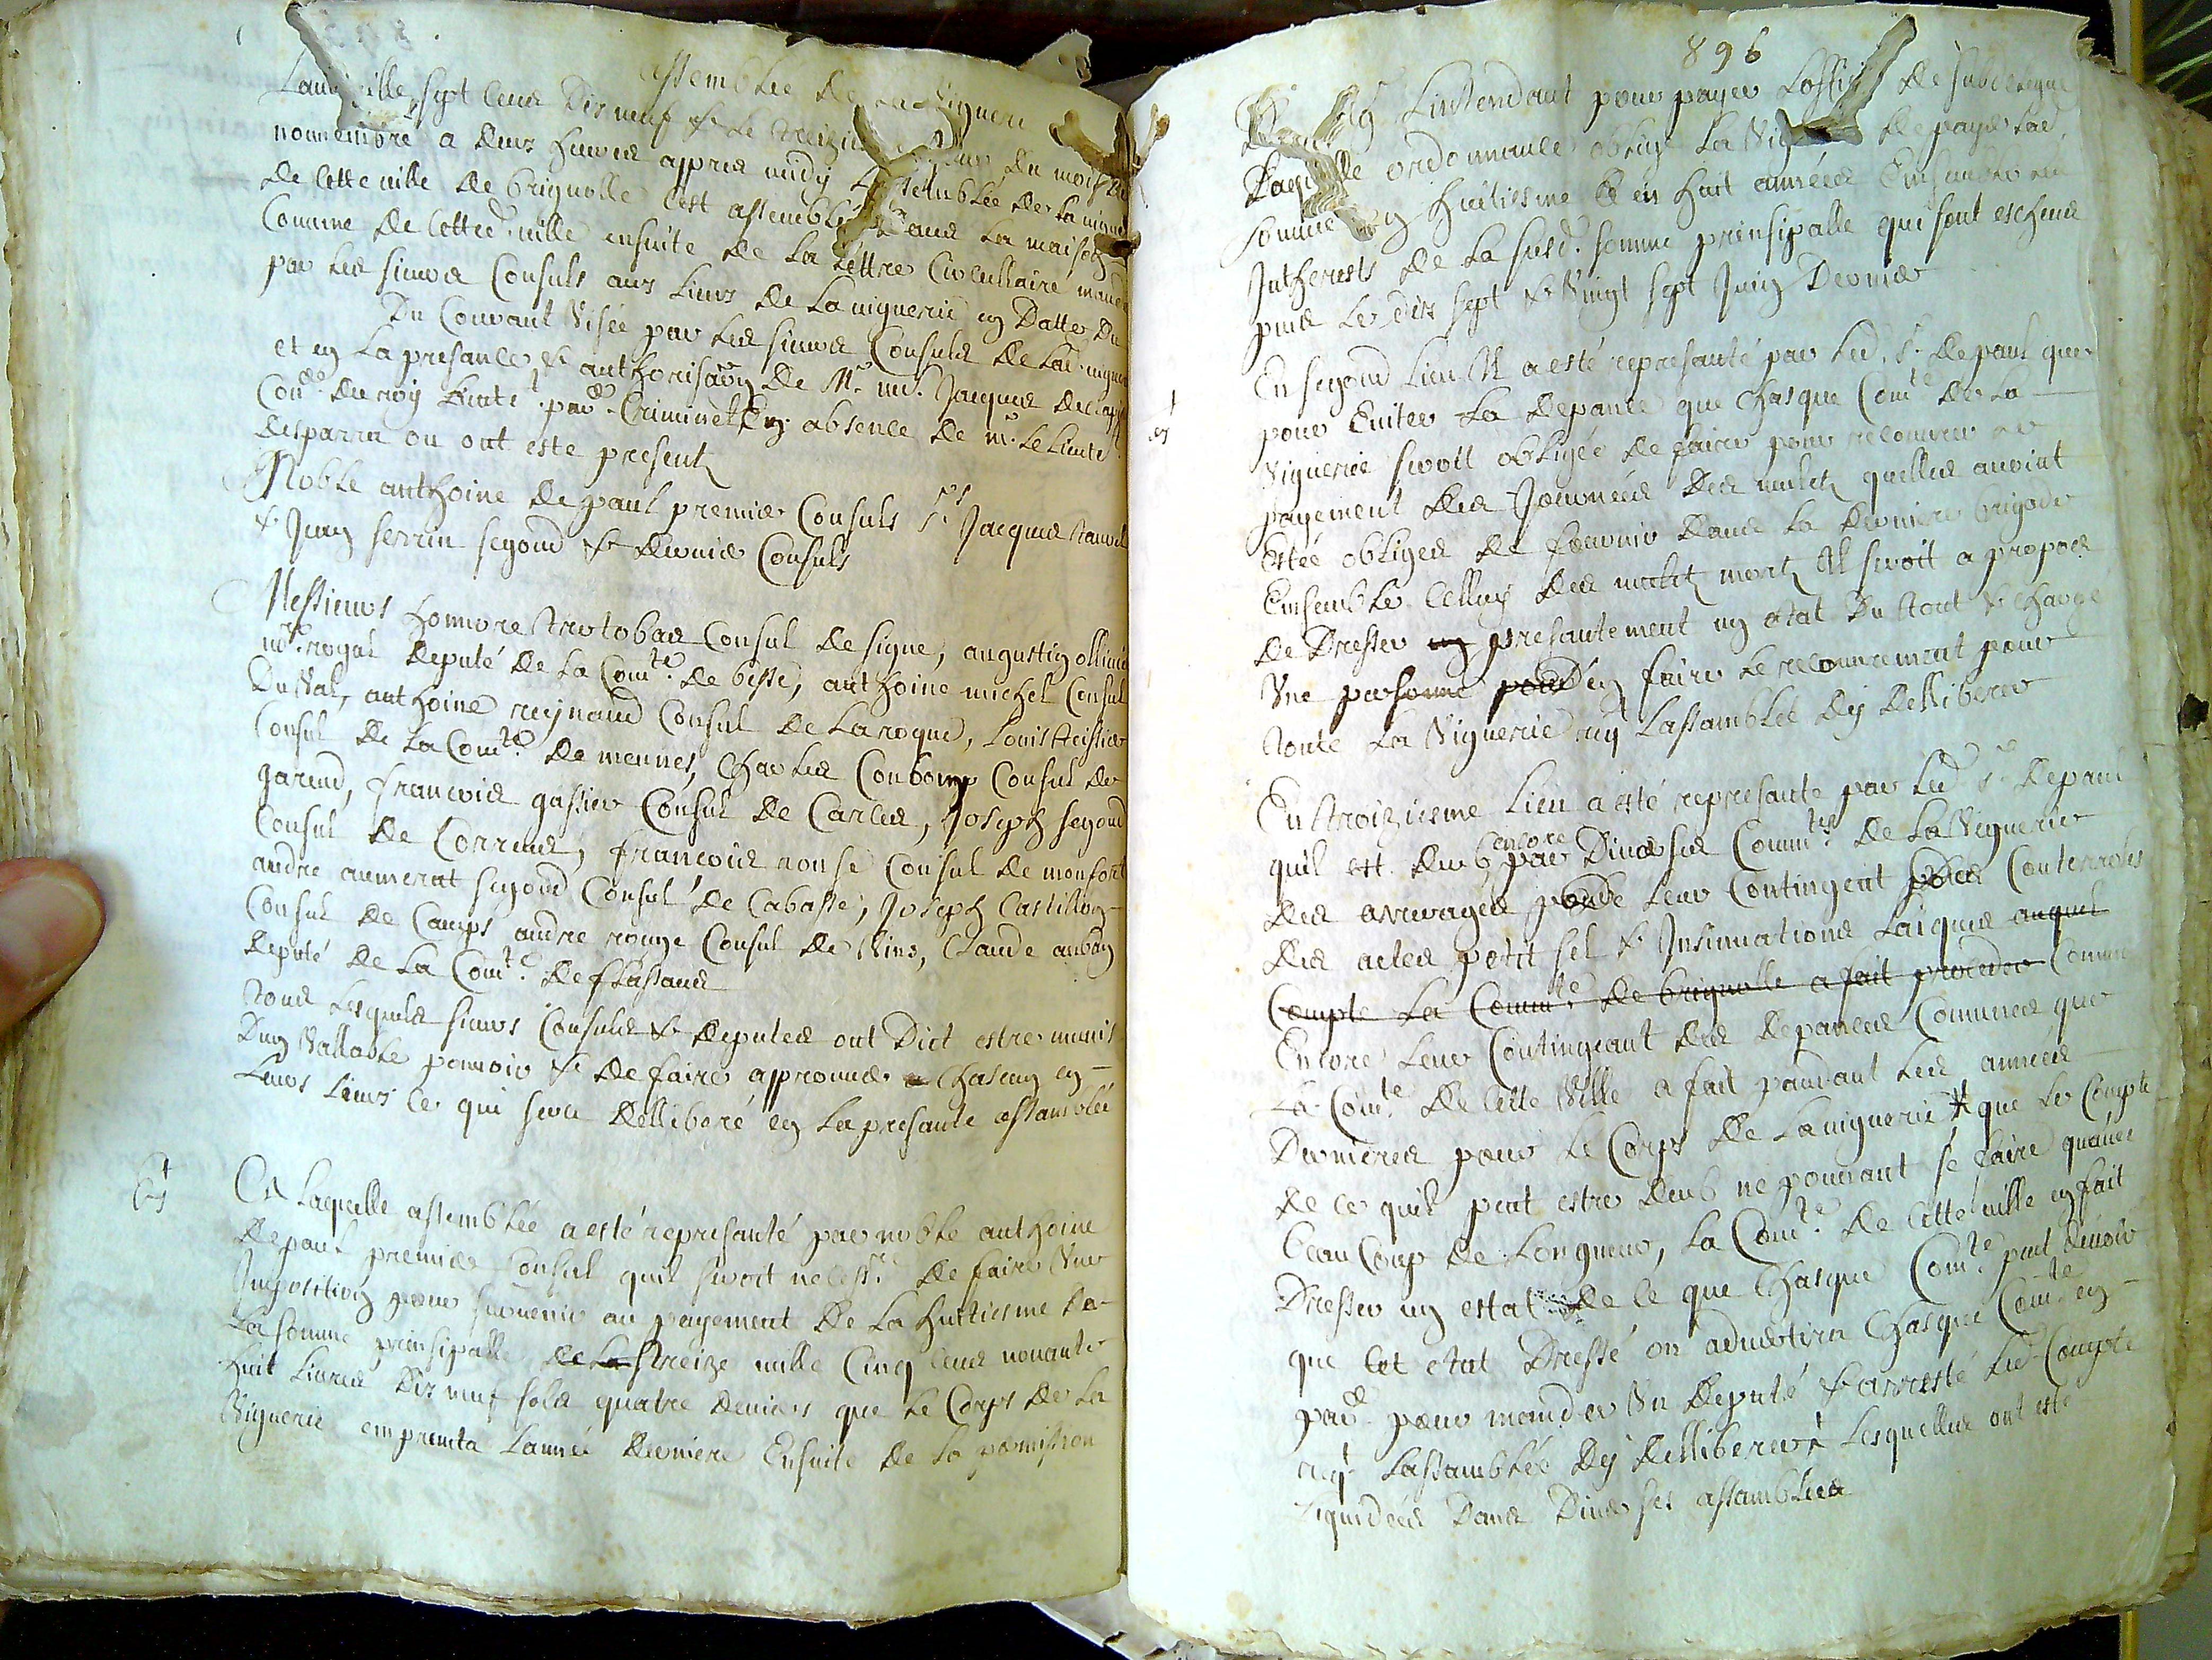 assemblée de la viguerie
Lan mille sept cens dix neuf & le treizie jour du mois de
nouuembre a deux heures appres midy Lassemblée de la vigue
de cette ville de brignolle cest assemblée dans la maison
Comune de cette d. ville ensuite de la lettre Circullaire mandé
par les sieurs Consuls aux lieux de la viguerie en Datte du
Du Courant visée par les sieurs Consuls de lad. viguerie
et en la presance & authorisaon de Mr me. Jacques
Coner. du roy lieutt. par. Criminel en absence de mr. le lieute
desparra ou ont este present
Noble anthoine de paul premier Consuls srs Jacques
& Jean serrin segond & dernier Consuls
Messieurs honnore trotobas Consul de signe, augustin ollivie
nre. royal deputé de la Comte. de besse, anthoine michel Consul
Du val, anthoine reynaud Consul de Laroque, Louis teissier
Consul de la Comte. de meunes, Charles Consul de
gareud, francois gassier Consul de Carles, Joseph segond
Consul de Correns, francois rousse Consul de monfort
andre aumerat segond Consul de Cabasse, Joseph Castillon
Consul de Camps andre rouge Consul de Vins, Claude auban
deputé de la Comte. de flassans
tous lesquels sieurs Consuls & deputes ont dict estre munis
Dun vallable pouvoir & de faire approuver a chascun en
leurs lieux ce qui sera delliberé en la presante assamblée
En laquelle assemblée a esté represanté par noble anthoine
depaul premier Consul quil seroit necessre. de faire une
Imposition pour survenir au payement de la huitiesme de
la somme prinsipalle de la treize mille Cinq cens nouante
huit livres dix neuf sols quatre deniers que le Corps de la
Viguerie emprunta lannée derniere Ensuite de la permission
896
De Lintendant pour payer Loffice de subdelegue
Laquelle ordonnance oblige la Viguerie de payer lad.
somme en huitiesme & en huit années Ensamble les
Intherests de la susd. somme prinsipalle qui sont escheus
puis les dix sept & vingt sept Juin dernier
En segond lieu Il a esté represanté par led. sr. depaul que
pour Eviter la depance que chasque Comte de la
Viguerie seroit obligée de faire pour recouvrer le
payement des Journées des mulets quelles avoint
Estée obliges de fournir dans la derniere brigade
Ensemble celluy des mulets morts Il seroit a propos
de Dresser un presantement un etat du tout & charge
une personne pour d'en faire le recouvrement pour
toute la Viguerie ruy Lassamblée dy delliberer
En troiziesme lieu a esté represanté par led sr. depaul
quil est deub encore par diverses Commtés de la Viguerie
des arrerages pour de leur Contingent pour des Conterrolles
des actes petit sel & Insinuations laiques auquel
Compte la Commte. de brignolle a fait proceder Comme
Encore leur Contingeant des depances Communes que
la Comte. de cette Ville a fait pandant les années
Dernieres pour le Corps de la viguerie + que le Compte
de ce quil peut estre deub ne pouvant se faire quavec
beau Coup de longueur, la Comte. de cette ville en fait
Dresser un estat de ce que chasque Comte. peut devoir
que cet etat dressé on advertira chasque Comte en
pard. pour mander un deputé & arresté led Compte
ruy Lassamblée dy delliberer + lesquelles ont esté
liquidées dans diverses assamblées